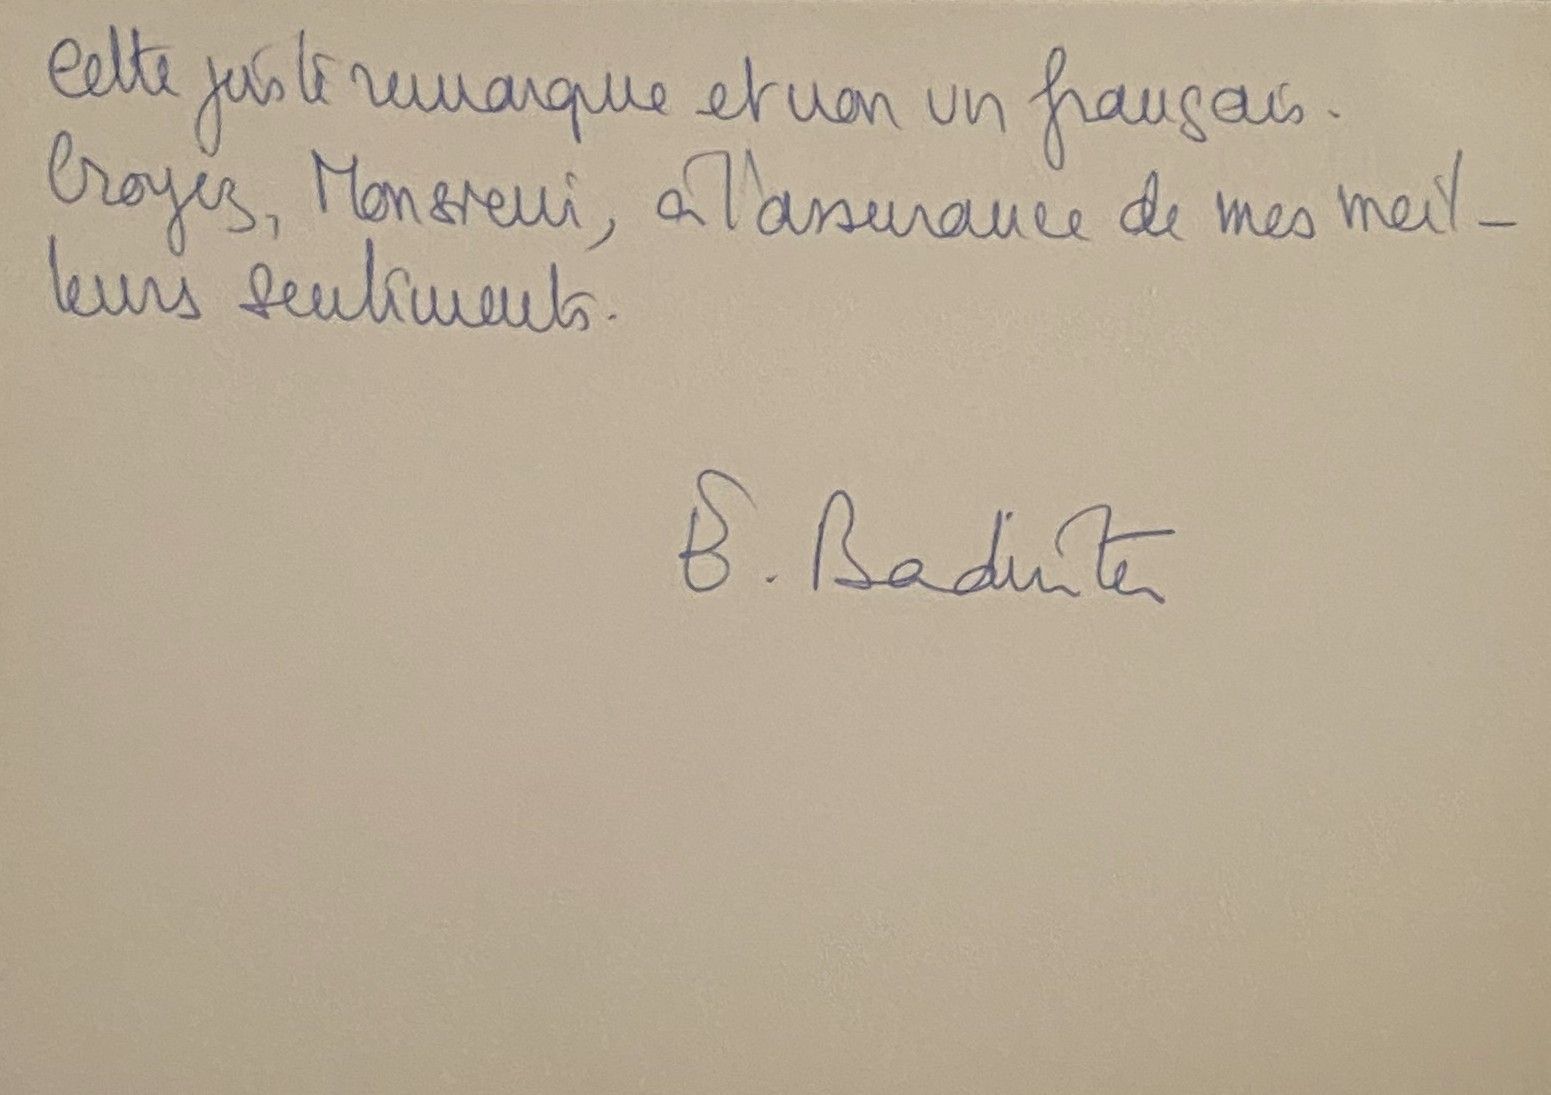 Cette juste remarque et non un français.
Croyez, Monsieur, à l'assurance de mes meil-
leurs sentiments.
E. Badinter